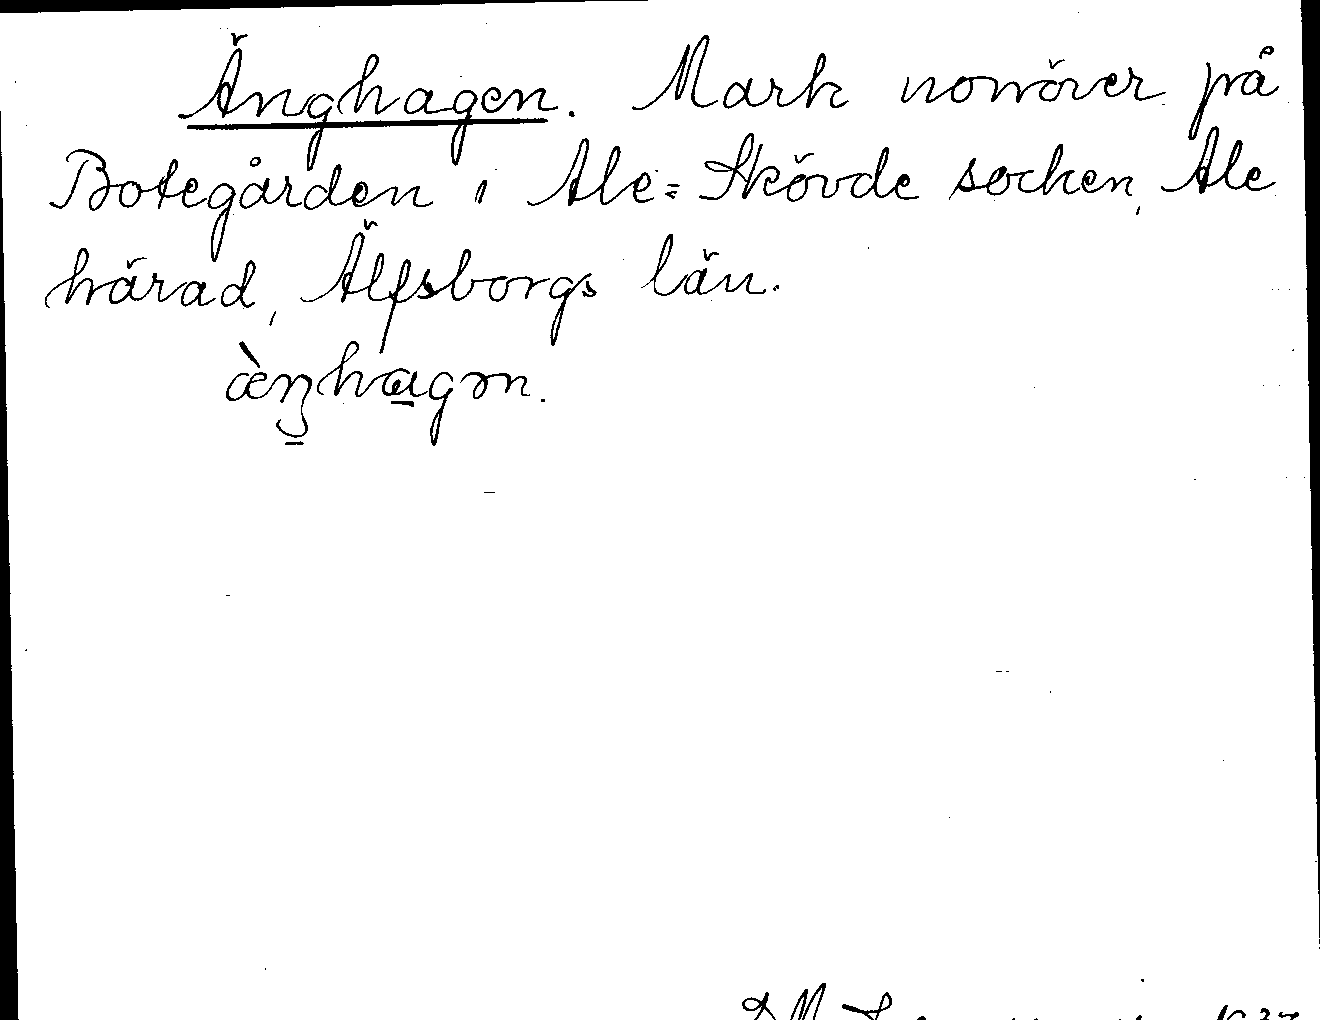 Änghagen. Mark norröver på
Botegården i Ale-Skövde socken, Ale
härad, Älfsborgs län.
æ̀ŋhagən.